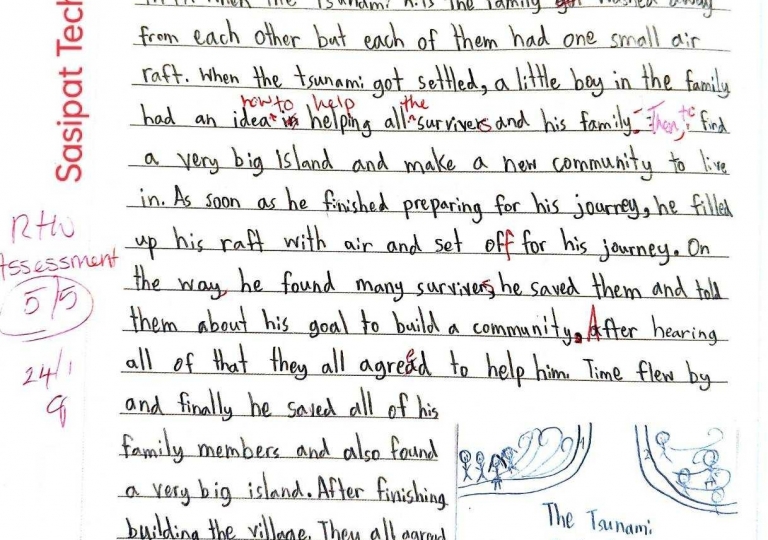 Tsunami hits the family got washed away
from each other but each of them had one small air
raft. When the tsunami got settled, a little boy in the family
how to help the
had an idea in helping all survivers and his family. Then, to find
a very big Island and make a new community to live
in. As soon as he finished preparing for his journey, he filled
up his raft with air and set off for his journey. On
the way, he found many survivers, he saved them and told
them about his goal to build a community. After hearing
all of that they all agreed to help him. Time flew by
and finally he saved all of his
family members and also found
a very big island. After finishing
building the village. They all agreed
Sasipat Tech
RHW
Assessment
5/5
24/1
The Tsunami